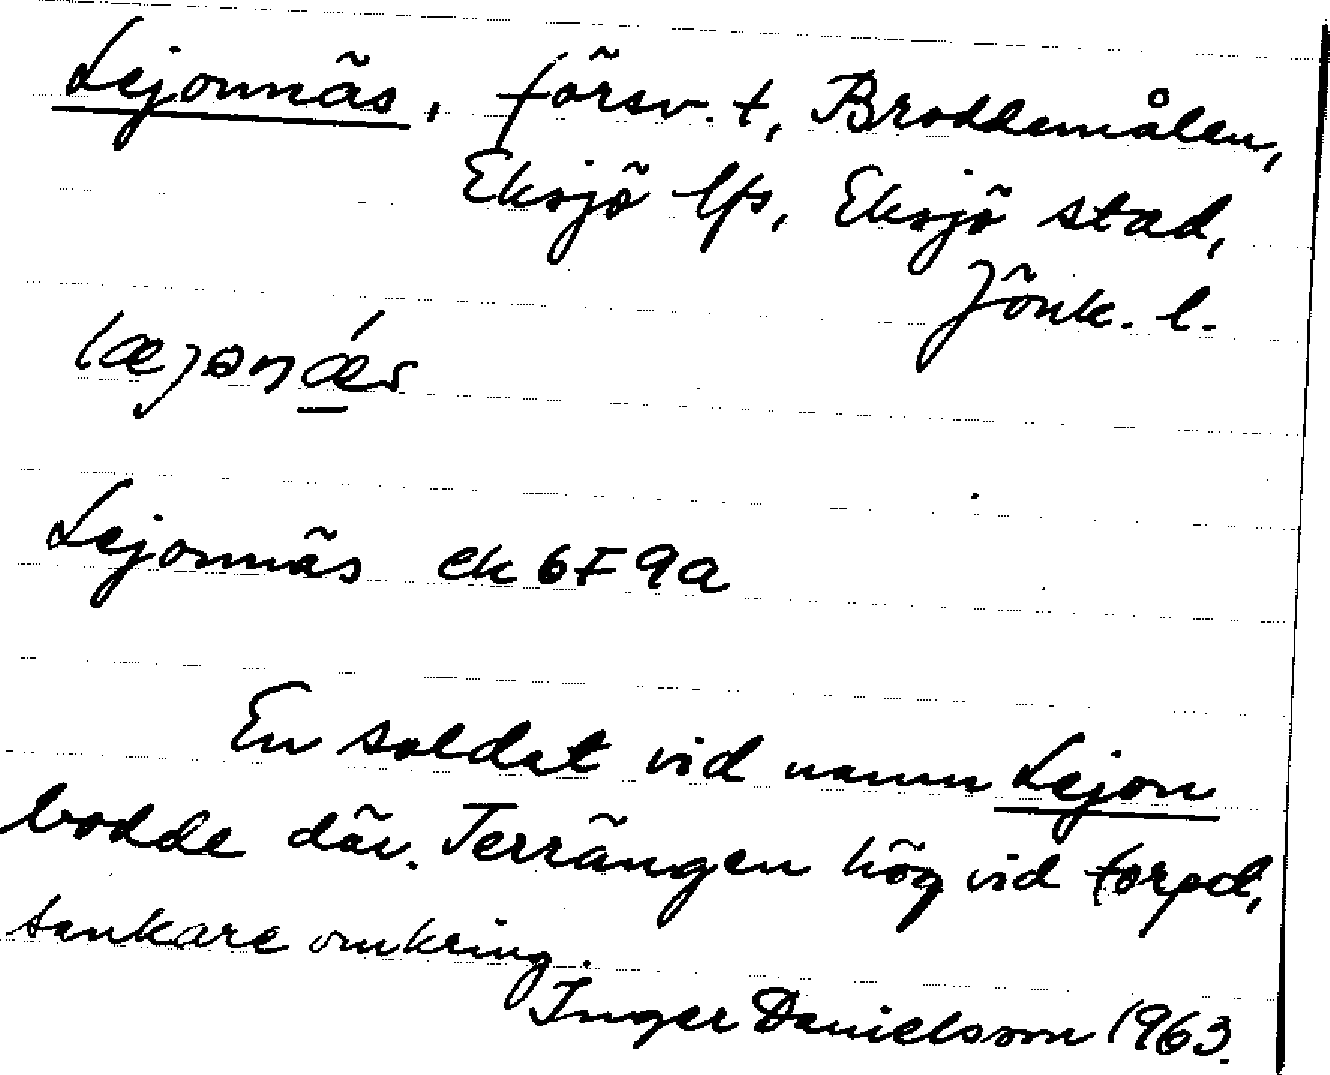 Lejonnäs, försv. t, Broddemålen,
Eksjö lfs, Eksjö stad,
Jönk. l.
Lejonnäs ek 6F9a
En soldat vid namn Lejon
bodde där. Terrängen hög vid torpet,
sankare omkring.
Inger Danielsson 1963.